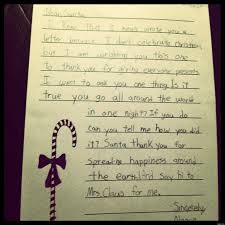 Dear Santa,
I know that I never wrote you a
letter because I don't celebrate christmas,
but I am writing you this one
To thank you for giving everyone presents
I want to ask you one thing Is it
true you go all around the world
in one night? If you do
can you tell me how you did
it? Santa thank you for
spreading happiness around
the earth. And say hi to
Mrs. Claus for me.
Sincerely,